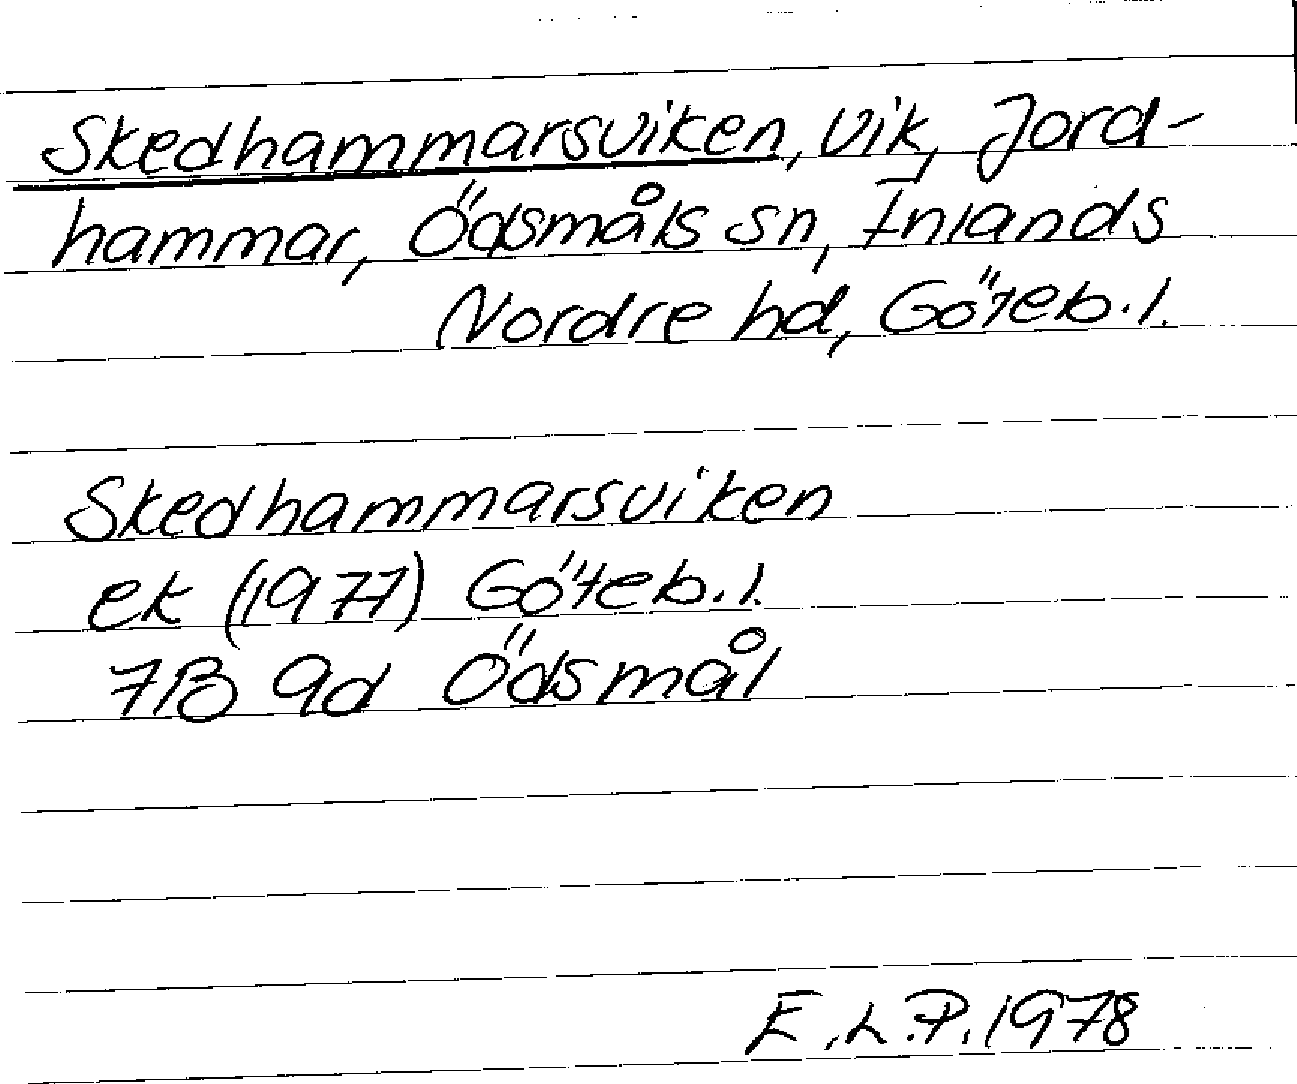 Skedhammarsviken, vik, Jord-
hammar, Ödsmåls sn, Inlands
Nordre hd, Göteb. l.
Skedhammarsviken
ek (1977) Göteb. l.
7B 9d Ödsmål
E.L.P. 1978